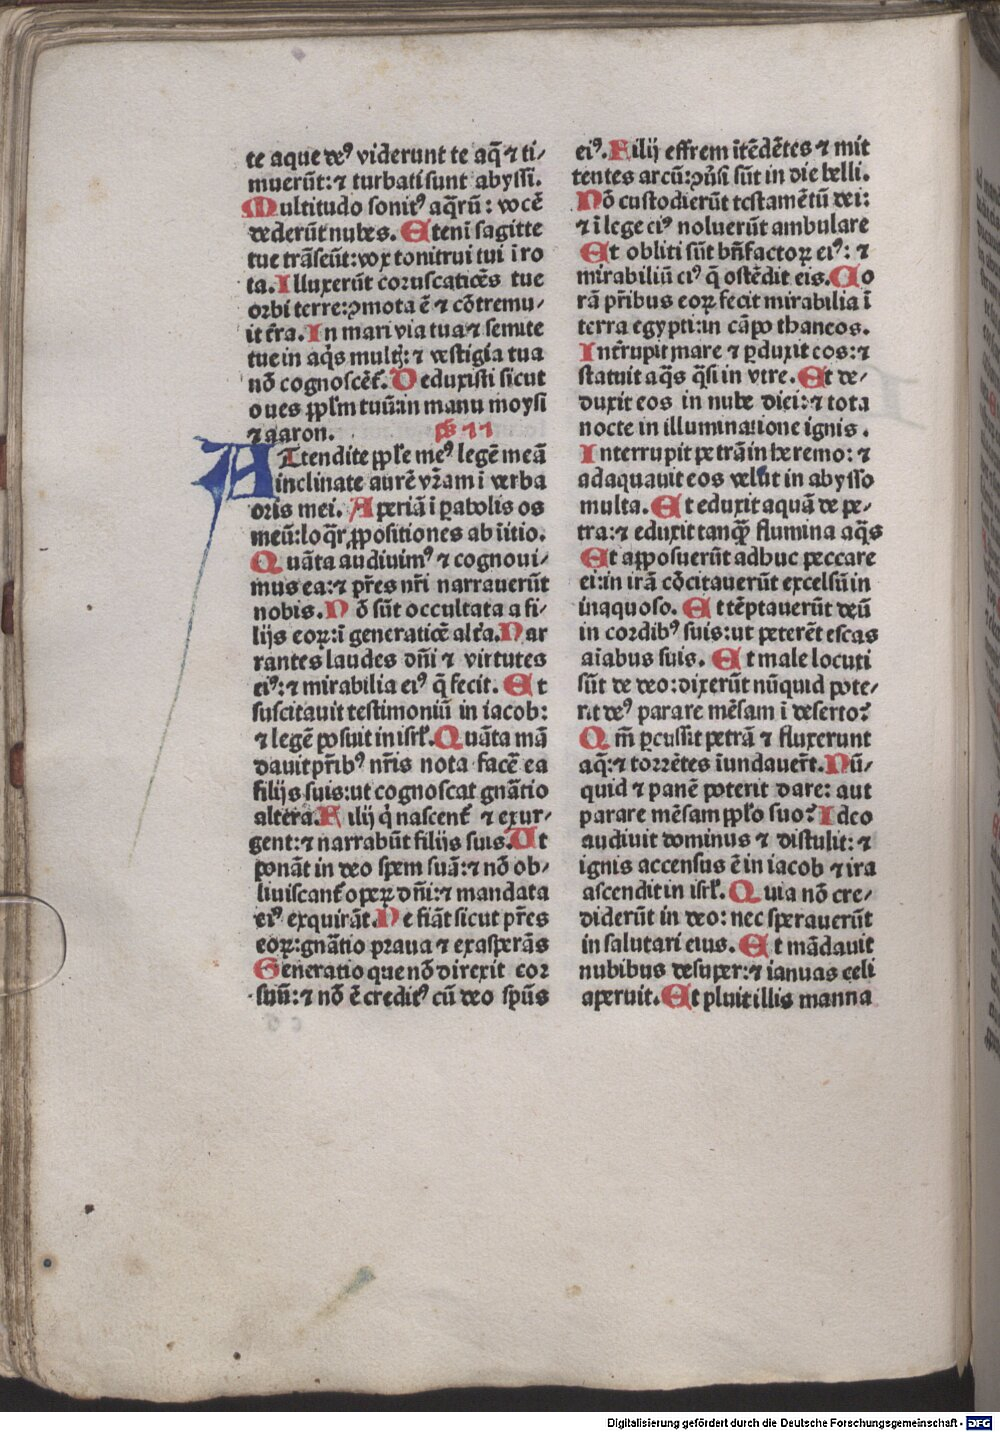 te aque deꝰ viderunt te aq̄ ⁊ ti⸗
muerūt:⁊ turbati sunt abyssi.
Multitudo sonitꝰ aq̄rū: vocē
dederūt nubes. Eteni sagitte
tue trāseūt:vox tonitrui tui i ro
ta. Illuxerūt coruscatiōes tue
orbi terre:ꝯmota ē ⁊ cōtremu⸗
it t̄ra. In mari via tua ⁊ semite
tue in aq̄s multꝭ: ⁊ vestigia tua
nō cognoscēt᷑. Deduxisti sicut
oues ꝓpl̄m tuū:in manu moysi
⁊ aaron. ps 77
Attendite ꝓpl̄e meꝰ legē meā
inclinate aurē vr̄am i verba
oris mei. Aperiā i ꝑabolis os
meū:loq̄r ꝓpositiones ab iītio.
Quāta audiuimꝰ ⁊ cognoui⸗
mus ea:⁊ pr̄es nr̄i narrauerūt
nobis. Nō sūt occultata a fi⸗
lijs eoꝝ:ī generatiōe alt̄a. Nar
rantes laudes dn̄i ⁊ virtutes
eiꝰ:⁊ mirabilia eiꝰ q̄ fecit. Et
suscitauit testimoniū in iacob:
⁊ legē posuit in isrl̄. Quāta mā
dauit pr̄ibꝰ nr̄is nota facē ea
filijs suis:ut cognoscat gnātio
altera. Filij q̇ nascent᷑ ⁊ exur⸗
gent:⁊ narrabūt filijs suis. Ut
ponāt in deo spem suā:⁊ nō ob⸗
liuiscant᷑ opeꝝ dn̄i:⁊ mandata
eiꝰ exquirāt. Ne fiāt sicut pr̄es
eoꝝ:gnātio praua ⁊ exasperās
Generatio que nō direxit cor
suū:⁊ nō ē creditꝰ cū deo sp̄us
eiꝰ. Filij effrem ītēdētes ⁊ mit
tentes arcū:ꝯuͥsi sūt in die belli.
Nō custodierūt testamētū dei:
⁊ ī lege eiꝰ noluerūt ambulare
Et obliti sūt bn̄factoꝝ eiꝰ: ⁊
mirabiliū eiꝰ q̄ ostēdit eis. Co
rā pr̄ibus eoꝝ fecit mirabilia ī
terra egypti:in cāpo thaneos.
Int̄rupit mare ⁊ ꝑduxit eos:⁊
statuit aq̄s q̄si in vtre. Et de⸗
duxit eos in nube diei:⁊ tota
nocte in illuminatione ignis.
Interrupit petrā in heremo: ⁊
adaquauit eos velut in abysso
multa. Et eduxit aquā de pe⸗
tra:⁊ eduxit tanqꝫ̄ flumina aq̄s
Et aꝓposuerūt adhuc peccare
ei:in irā cōcitauerūt excelsū in
inaquoso. Et tēptauerūt deū
in cordibꝰ suis:ut peterēt escas
aīabus suis. Et male locuti
sūt de deo:dixerūt nūquid pote⸗
rit deꝰ parare mēsam i deserto?
Qm̄ ꝑcussit petrā ⁊ fluxerunt
aq̄:⁊ torrētes īundauer̄t. Nū⸗
quid ⁊ panē poterit dare: aut
parare mēsam ppl̄o suo? Ideo
audiuit dominus ⁊ distulit: ⁊
ignis accensus ē in iacob ⁊ ira
ascendit in isrl̄. Quia nō cre⸗
diderūt in deo: nec sperauerūt
in salutari eius. Et mādauit
nubibus desuper:⁊ ianuas celi
aperuit. Et pluit illis manna
Digitalisierung gefördert durch die Deutsche Forschungsgemeinschaft - DFG